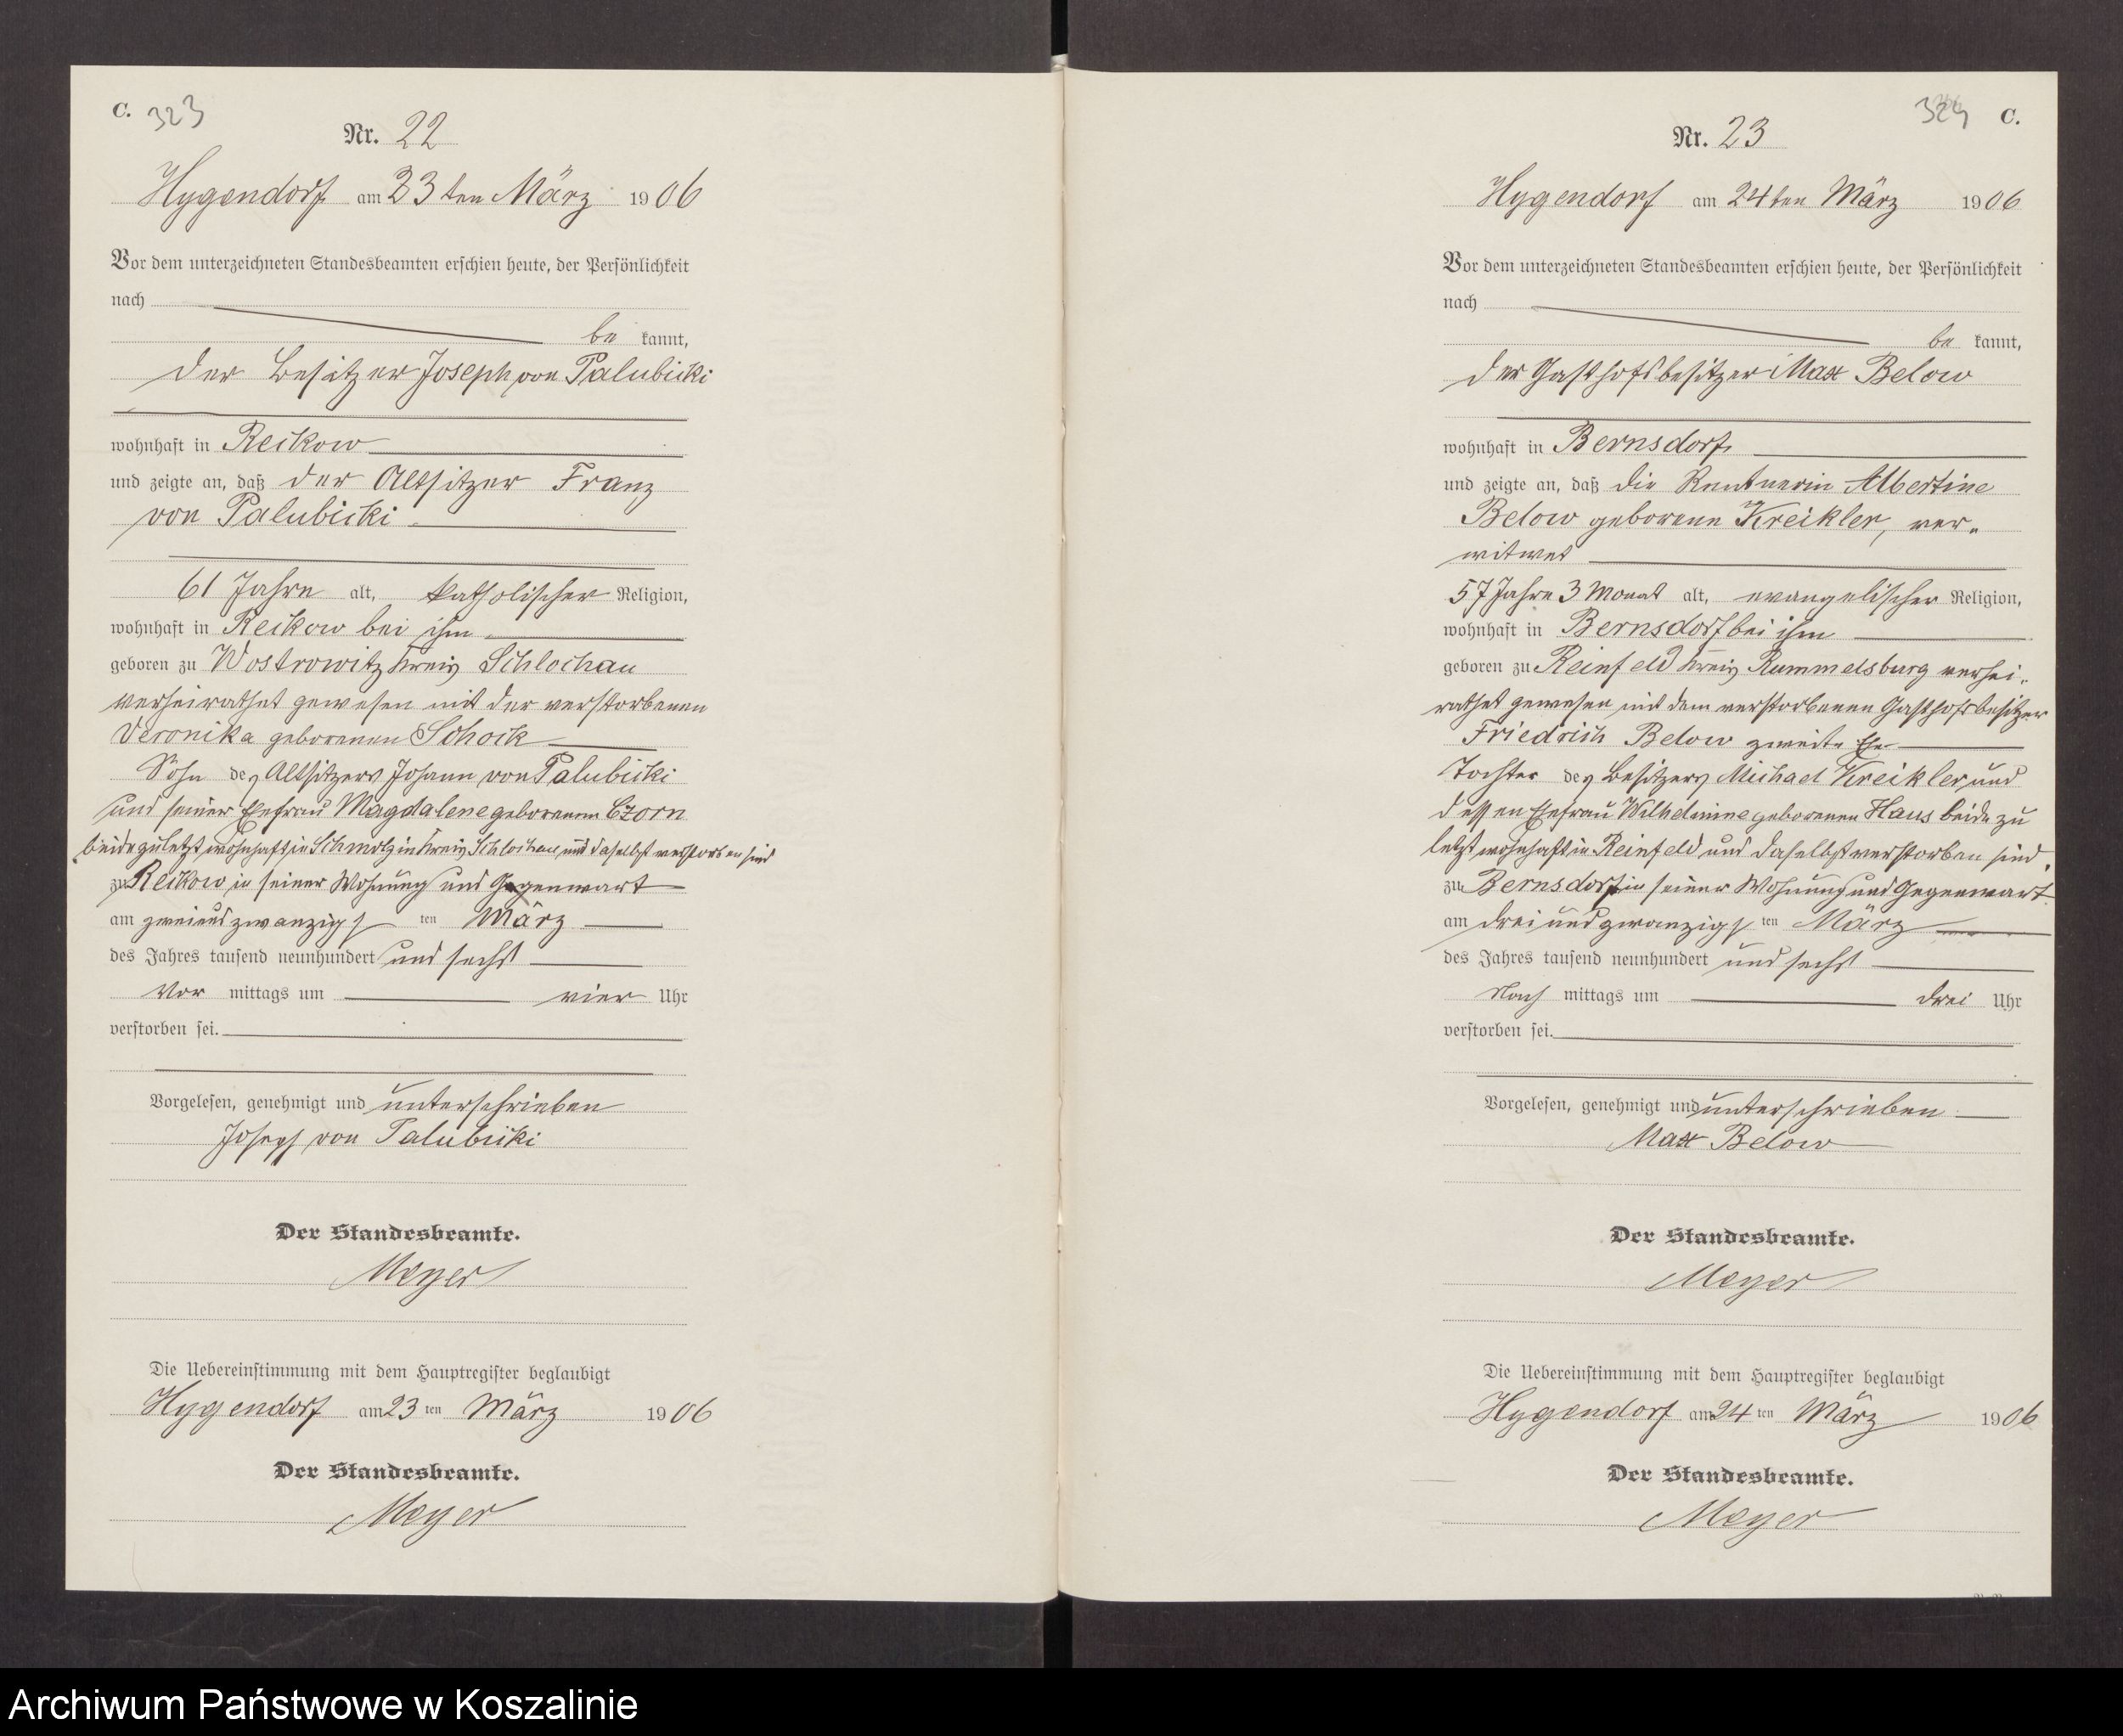 C. 323
Nr. 22
Hygendorf am 23ten März 1906
Vor dem unterzeichneten Standesbeamten erschien heute, der Persönlichkeit
nach
be kannt,
der Besitzer Joseph von Palubicki
wohnhaft in Reckow
und zeigte an, daß der Altsitzer Franz
von Palubicki
61 Jahre alt, katholischer Religion,
wohnhaft in Reckow bei ihm
geboren zu Wostrowitz Kreis Schlochau
verheirathet gewesen mit der verstorbenen
Veronika geborenen Schock
Sohn des Altsitzers Johann von Palubicki
und seiner Ehefrau Magdalene geborenen Czorn
beide zuletzt wohnhaft in Schmolz in Kreis Schlochau und daselbst verstorben sind
zu Reckow in seiner Wohnung und Gegenwart
am zweiundzwanzigs ten März
des Jahres tausend neunhundert und sechs
Vor mittags um vier Uhr
verstorben sei.
Vorgelesen, genehmigt und unterschrieben
Joseph von Palubicki
Der Standesbeamte.
Meyer
Die Uebereinstimmung mit dem Hauptregister beglaubigt
Hygendorf am 23 ten März 1906
Der Standesbeamte.
Meyer
324 C.
Nr. 23
Hygendorf am 24ten März 1906
Vor dem unterzeichneten Standesbeamten erschien heute, der Persönlichkeit
nach
be kannt,
der Gasthofsbesitzer Max Below
wohnhaft in Bernsdorf
und zeigte an, daß die Rentnerin Albertine
Below geborene Kreikler, ver-
witwet
57 Jahre 3 Monat alt, evangelischer Religion,
wohnhaft in Bernsdorf bei ihm
geboren zu Reinfeld Kreis Rummelsburg verhei-
rathet gewesen mit dem verstorbenen Gasthofsbesitzer
Friedrich Below zweite Ehe
Tochter des Besitzers Michael Kreikler und
dessen Ehefrau Wilhelmine geborenen Haus beide zu
letzt wohnhaft in Reinfeld und daselbst verstorben sind.
zu Bernsdorf in seiner Wohnung und Gegenwart
am drei und zwanzigs ten März
des Jahres tausend neunhundert und sechs
Nach mittags um drei Uhr
verstorben sei.
Vorgelesen, genehmigt und unterschrieben
Max Below
Der Standesbeamte.
Meyer
Die Uebereinstimmung mit dem Hauptregister beglaubigt
Hygendorf am 24 ten März 1906
Der Standesbeamte.
Meyer
Archiwum Państwowe w Koszalinie